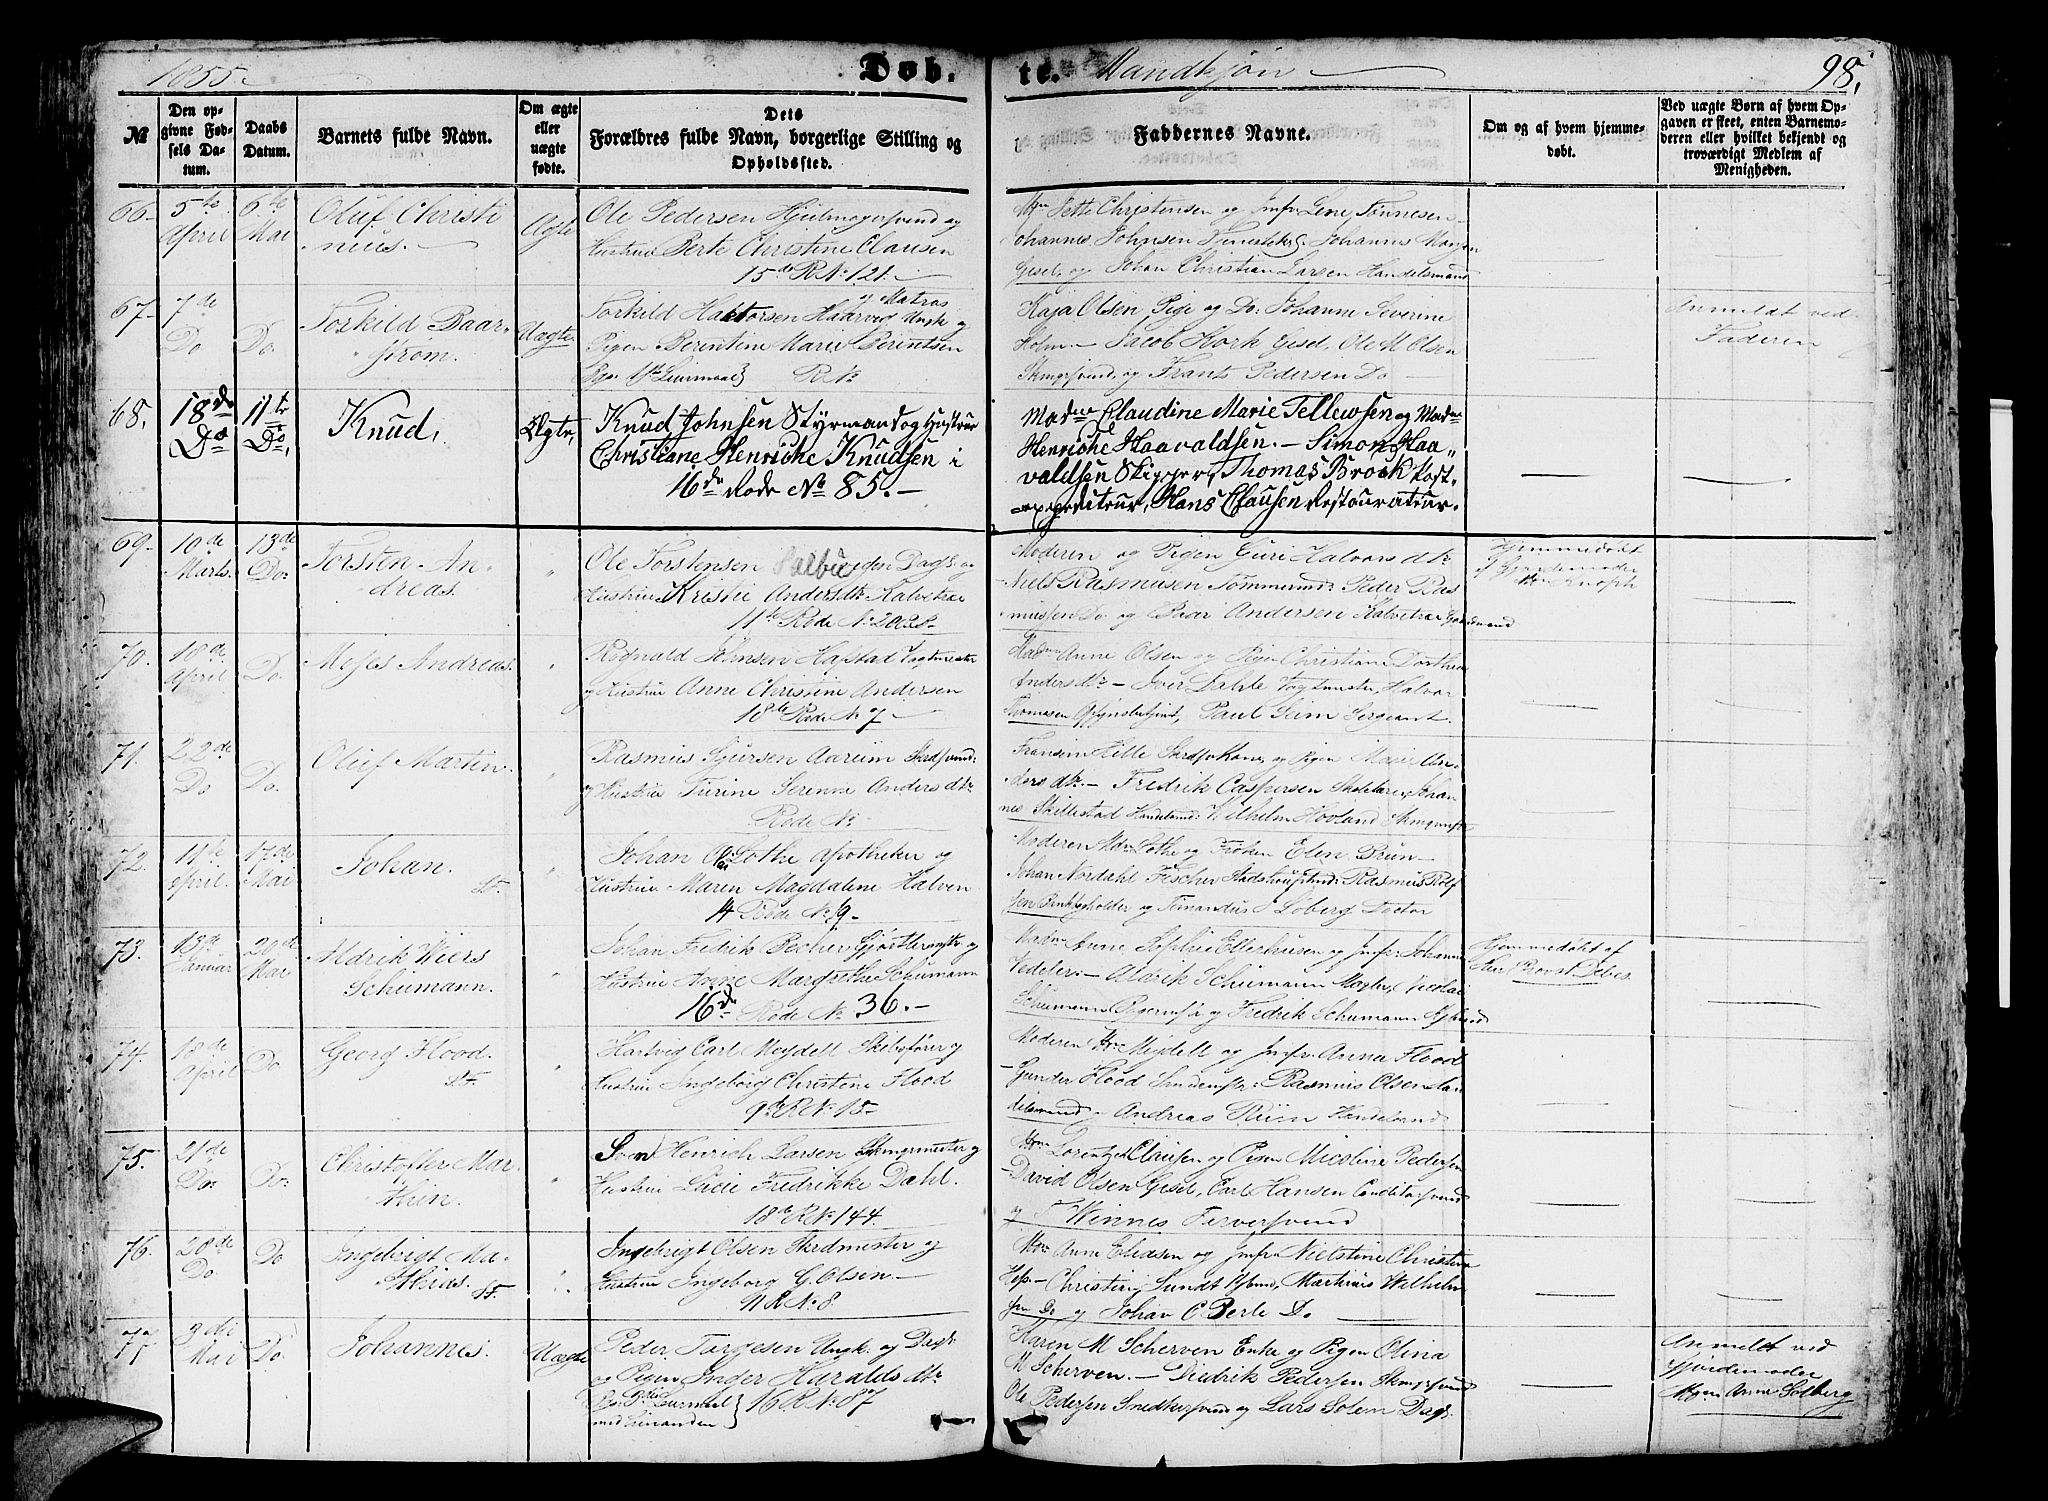 1855.
Døb. te. Mandkjøn
98.
№
Den opgivne Fødsels Datum.
Daabs Datum.
Barnets fulde Navn.
Om ægte eller uægte fødte.
Dets Forældres fulde Navn, borgerlige Stilling og Opholdssted.
Faddernes Navne.
Om og af hvem hjemmedøbt.
Ved uægte Børn af hvem Opgaven er skeet, enten Barnemoderen eller hvilket bekjendt og troværdigt Medlem af Menigheden.
66. 5te April 6te Mai Oluf Christinus. Ægte
Ole Pedersen Hjulmagersvend og
Hustrue Berte Christine Clausen
15de R. № 121.
Mdm Jette Christensen og Jmfr Lene Tønnesen
Johannes Johnsen
Gesel, og Johan Christian Larsen Handelsmand
67. 7de Do Do. Torkild Baarstrøm. Uægte
Torkild Haktorsen Haarvig Ungk og Matros
Pigen Berentine Marie Berentsen
R №
Kaja Olsen Pige og Do: Johanne Severine
Holm. Jacob Hork Gesel, Ole M Olsen
Skmgrsvend, og Frants Pedersen Do
Anmeldt ved
Faderen
68. 18de Do 11te Do, Knud, Ægte,
Knud Johnsen Styrmand og Hustrue
Christiane Henriche Knudsen i
16de Rode № 85.
Madme Claudine Marie Tellewsen og Madme
Henriche Haavaldsen. Simon Haavaldsen
Skipper, Thomas Brock Postexpediteur,
Hans Clausen Restaurateur.
69. 10de Marts. 13de Do. Torsten Andreas.
Ole Torstensen Salbuviden Dags. og
Hustrue Kristie Andersdtr Kalvetræ
11te Rode №
Moderen og Pigen Guri Halvorsdtr
Niels Rasmusen Tømmermd: Peder Rasmussen
Do og Baar Andersen Kalvetræ Gaardmand
Hjemmedøbt
af Gjordemoder
70. 18de April Do. Moses Andreas.
Rognald Johnsen Hafstad Vagtmester
og Hustrue Anne Christine Andersen
18de Rode № 7
Madm Anne Olsen og Pigen Christiane Dorthea
Andersdtr Iver Dahle Vagtmester, Halvor
Thomasen Opsynsbetjent, Paul Seim Sergeant.
71. 22de Do Do. Oluf Martin.
Rasmus Sjursen Aarum Skrdsvend:
og Hustrue Turine Serenne Andersdtr
Rode №
Fransine Hille Skrdsvkone, og Pigen Marie Andersdtr.
Fredrik Caspersen Skolelærer, Johannes
Skillestad Handelsmd: Wilhelm Hovland
72. 11te April. 17de Mai Johan.
Johan Lothe Apotheker og
Hustrue Maren Magdalene Halven
14 Rode № 19.
Moderen Mdm Lothe og Frøken Elen Brun
Johan Nordahl Fischer Stadshauptmd: Rasmus Rolfsen
og Fimandus S Loberg Doctor
73. 13de Januar 20de Mai Aldrik Wiers Schumann.
Johan Fredrik Becher Gjørtlermstr og
Hustrue Anne Margrethe Schumann
16de Rode № 36.
Madm Anne Sophie Ellerhusen og Jmfr: Johanne
Vedeler Aldrik Schumann Mægler, Nicolai
Schumann og Fredrik Schumann
Hjemmedøbt af
Herr Provst Debes.
74. 18de April Do Georg Flood.
Hartvig Carl Meydell Skibsfører og
Hustrue Ingeborg Christine Flood
9de R № 15
Moderen Mdm Meydell og Jmfr: Anna Flood
Gunder Flood Rasmus Olsen Handelsmand
og Andreas Riin Handelsmd
75. 21de Do: Do: Christoffer Marthin.
Sven Henrich Larsen Skmgrmester og
Hustrue Lucie Fredrikke Dahl.
18de R № 144.
Mdm Lorentze Clausen og Pigen Nicoline Pedersen
David Olsen Gesel, Carl Hansen Conditorsvend
og T Winnes Farversvend
76. 28de Do Do Ingebrigt Mathias.
Ingebrigt Olsen Skrdmester og
Hustrue Ingeborg G. Olsen
11 R № 8.
Mdm Anne Eliasen og Jmfr Nielstine Christine
Christian Sundt Martinus Wilhelmsen
Do og Johan C. Berle Do.
77. 3die Mai Do. Johannes. Uægte
Peder Torgesen Ungk. og Dags.
og Pigen Inder Haraldsdtr
16 R № 87
Karen M Scherven Enke og Pigen Olina
M Scherven. Diedrik Pedersen Skmgrsvend
Ole Pedersen Smedkersvend og Lars Solem Dags.
Anmeldt ved
Gjordemoder
Mdm Anne Solberg